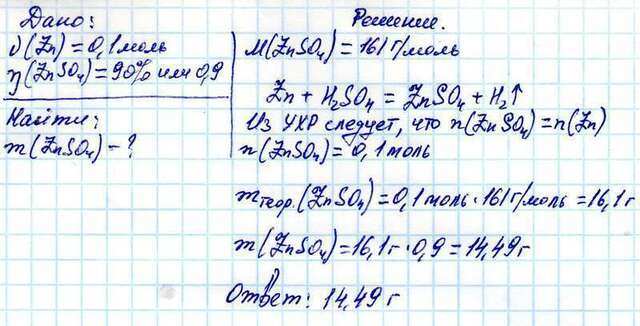 Дано:
ν(Zn) = 0,1 моль
η(ZnSO₄) = 90% или 0,9
Найти:
m(ZnSO₄) - ?
Решение.
M(ZnSO₄) = 161 г/моль
Zn + H₂SO₄ = ZnSO₄ + H₂↑
Из УХР следует, что n(ZnSO₄) = n(Zn)
n(ZnSO₄) = 0,1 моль
m теор. (ZnSO₄) = 0,1 моль · 161 г/моль = 16,1 г
m(ZnSO₄) = 16,1 г · 0,9 = 14,49 г
Ответ: 14,49 г